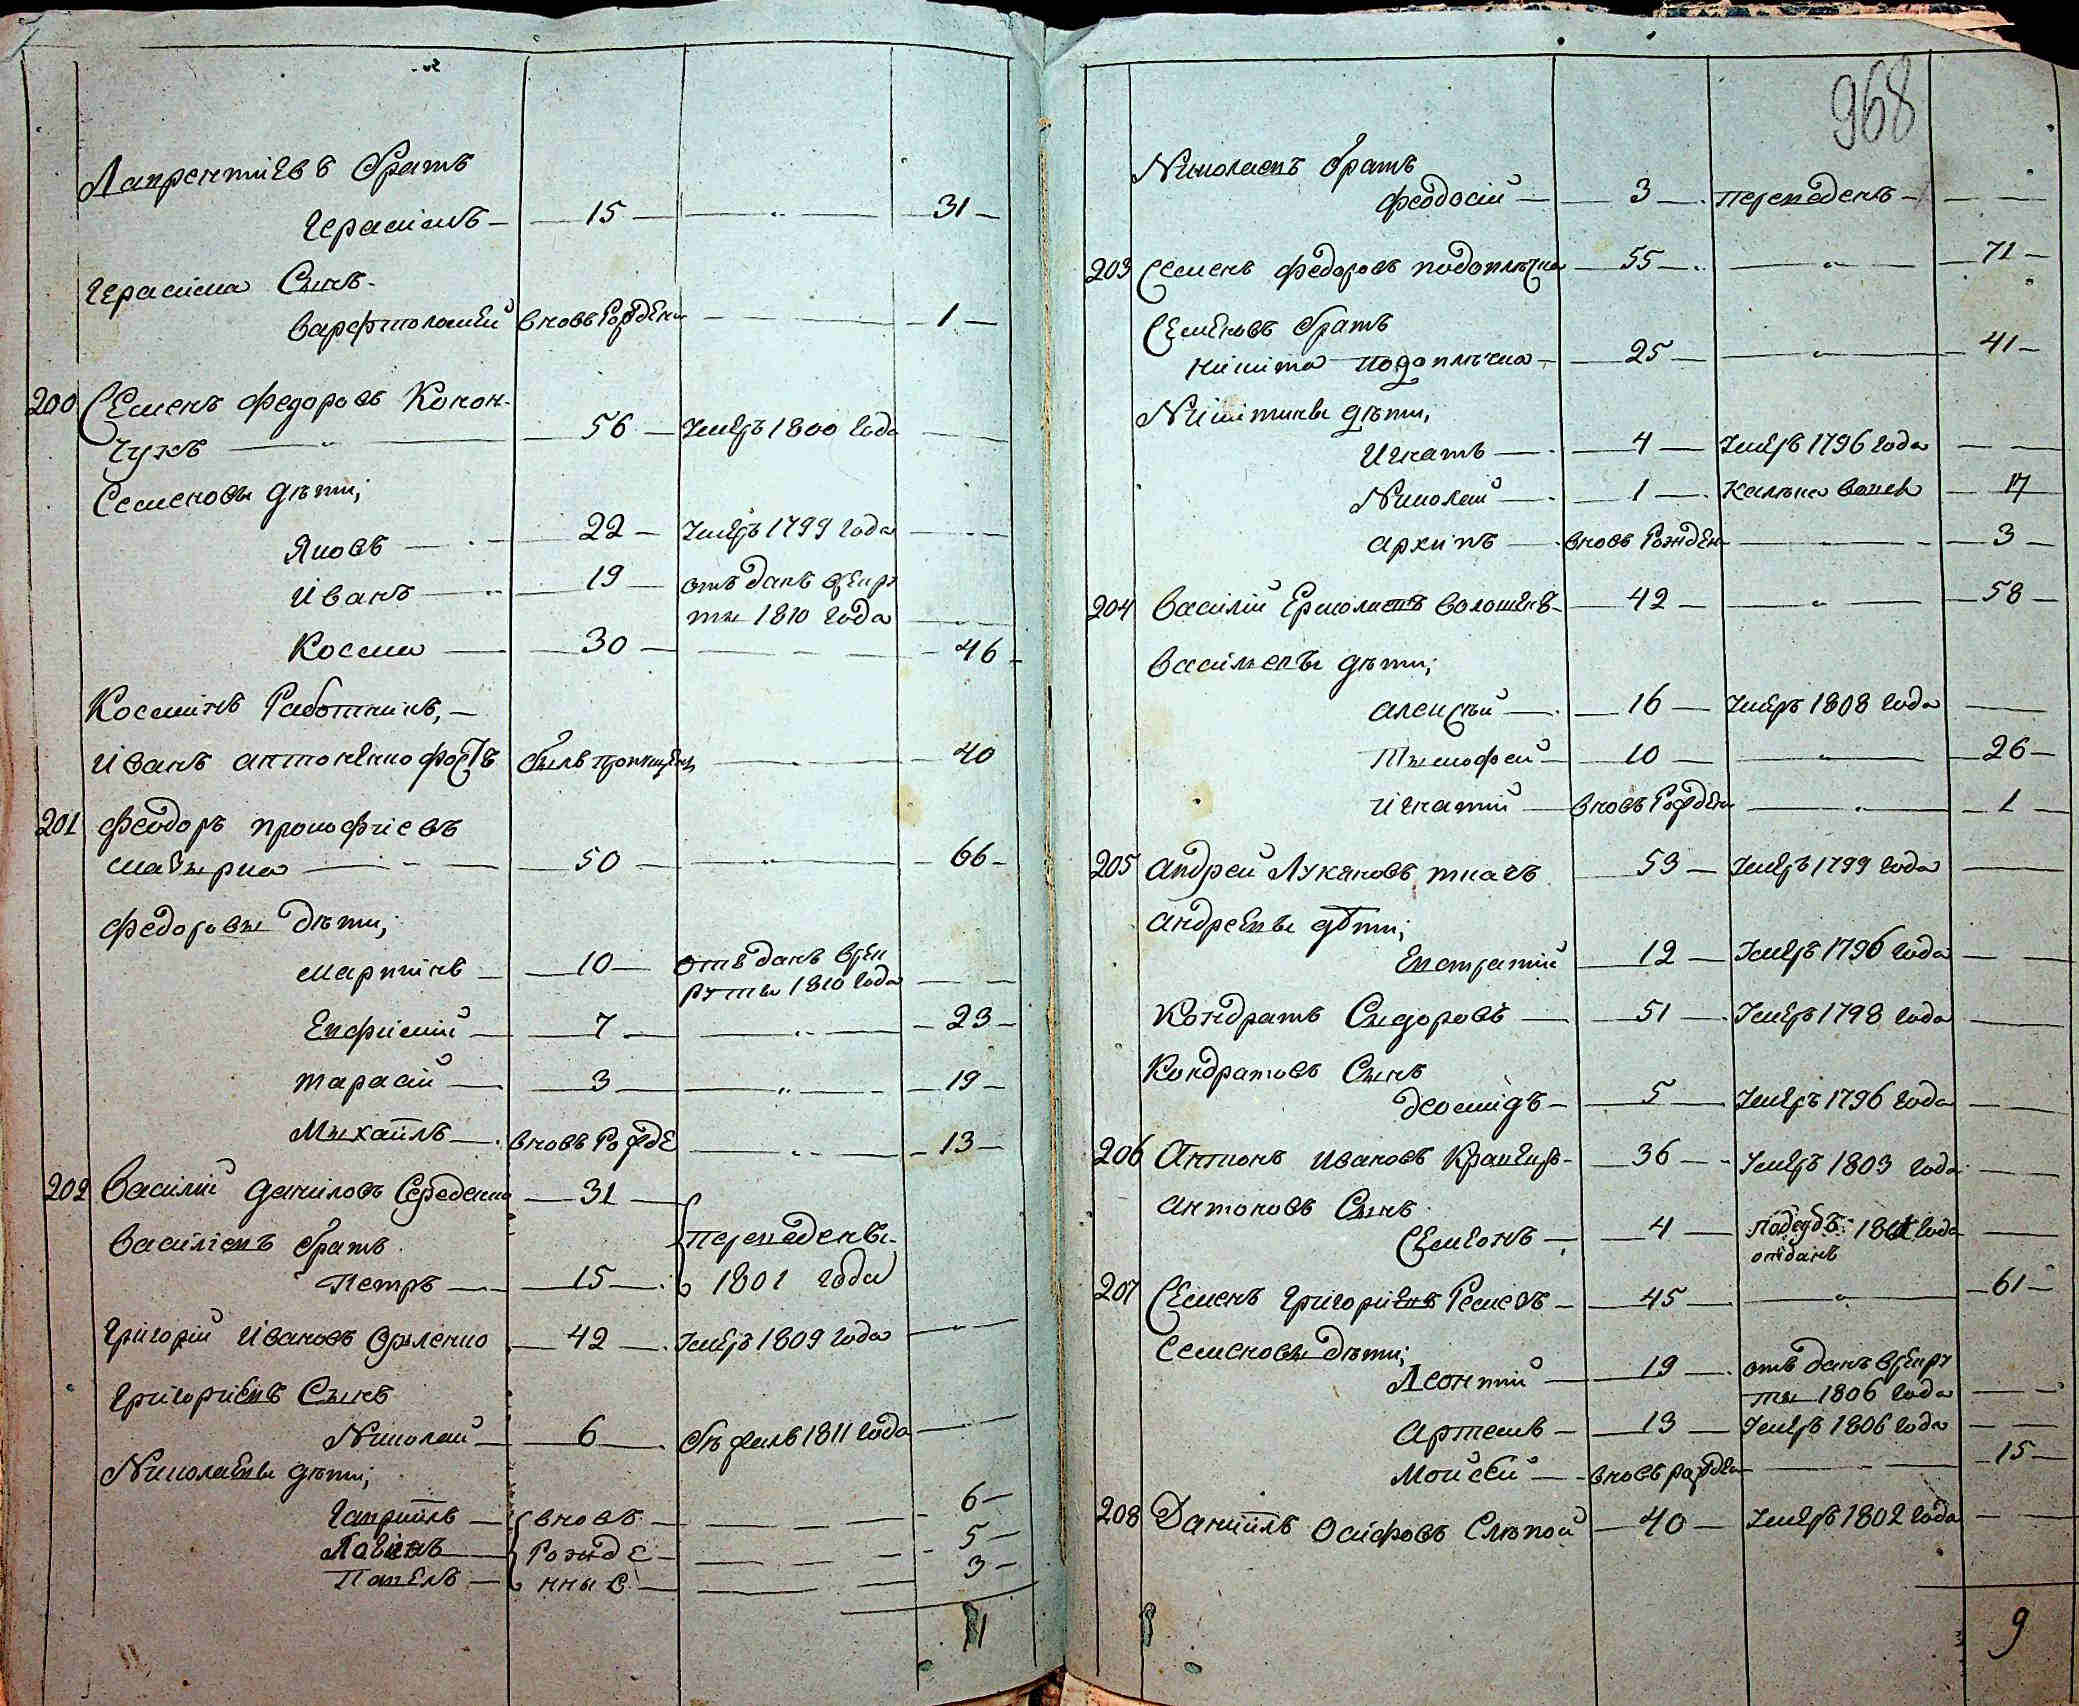 Лаврентиевъ братъ
Герасимъ — 15 — 31 —
Герасима Сынъ
Варфтоломей вновь Рожденъ — 1 —
200 Семенъ Федоровъ Конон-
чукъ — 56 — Умеръ 1800 года
Семеновы дѣти;
Яковъ — 22 — Умеръ 1799 года
Иванъ — 19 — отъ данъ врекру
ты 1810 года
Косма — 30 — 46
Космінъ Работникъ, —
Иванъ Антоненко былъ пропущенъ — 40
201 Феодоръ Прокофиевъ
— 50 — 66 —
Федоровы Дѣти;
Мартинъ — 10 — отъ данъ врек
руты 1810 года
Евфимій — 7 — 23 —
Тарасій — 3 — 19 —
Мыхайлъ — вновь Рожде — 13 —
202 Василій Даниловъ Середенко — 31 —
Василіевъ братъ переведены
Петръ — 15 — 1801 года
Григорій Ивановъ — 42 — Умеръ 1809 года
Григориевъ Сынъ
Николай — 6 — бѣжалъ 1811 года
Николаевы дѣти;
Гавриилъ — вновь — 6 —
рожде — 5 —
Павелъ — нные — 3 —
11
968
Николаевъ братъ
Феодосій — 3 — переведенъ —
203 Семенъ Федоровъ Подоплѣчка — 55 — 71 —
Семеновъ братъ
Никита Подоплѣчка — 25 — 41 —
Никитины дѣти;
Игнатъ — 4 — Умеръ 1796 года
Николай — 1 — 17
Архипъ — вновь Рожден — 3 —
204 Василій Ермолаевъ Волошенъ — 42 — 58 —
Васильевы дѣти;
Алексѣй — 16 — Умеръ 1808 года
Тымофей — 10 — 26 —
Игнатій — вновь Рожден — 1 —
205 Андрей Лукяновъ Ткачъ 53 — Умеръ 1799 года
Андреевы дѣти;
Евстратий — 12 — Умеръ 1796 года
Кондратъ Сыдоровъ — 51 — Умеръ 1798 года
Кондратовъ Сынъ
Деомидъ — 5 — Умеръ 1796 года
206 Антонъ Ивановъ — 36 — Умеръ 1803 года
Антоновъ Сынъ
Семионъ — 4 — года
отданъ
207 Семенъ Григориевъ — 45 — 61 —
Семеновы дѣти;
Леонтий — 19 — отъ данъ врекру
ты 1806 года
Артемъ — 13 — Умеръ 1806 года
Моисей — вновь рожден — 15 —
208 Даниилъ Осифовъ Слѣпой — 40 — Умеръ 1802 года
9